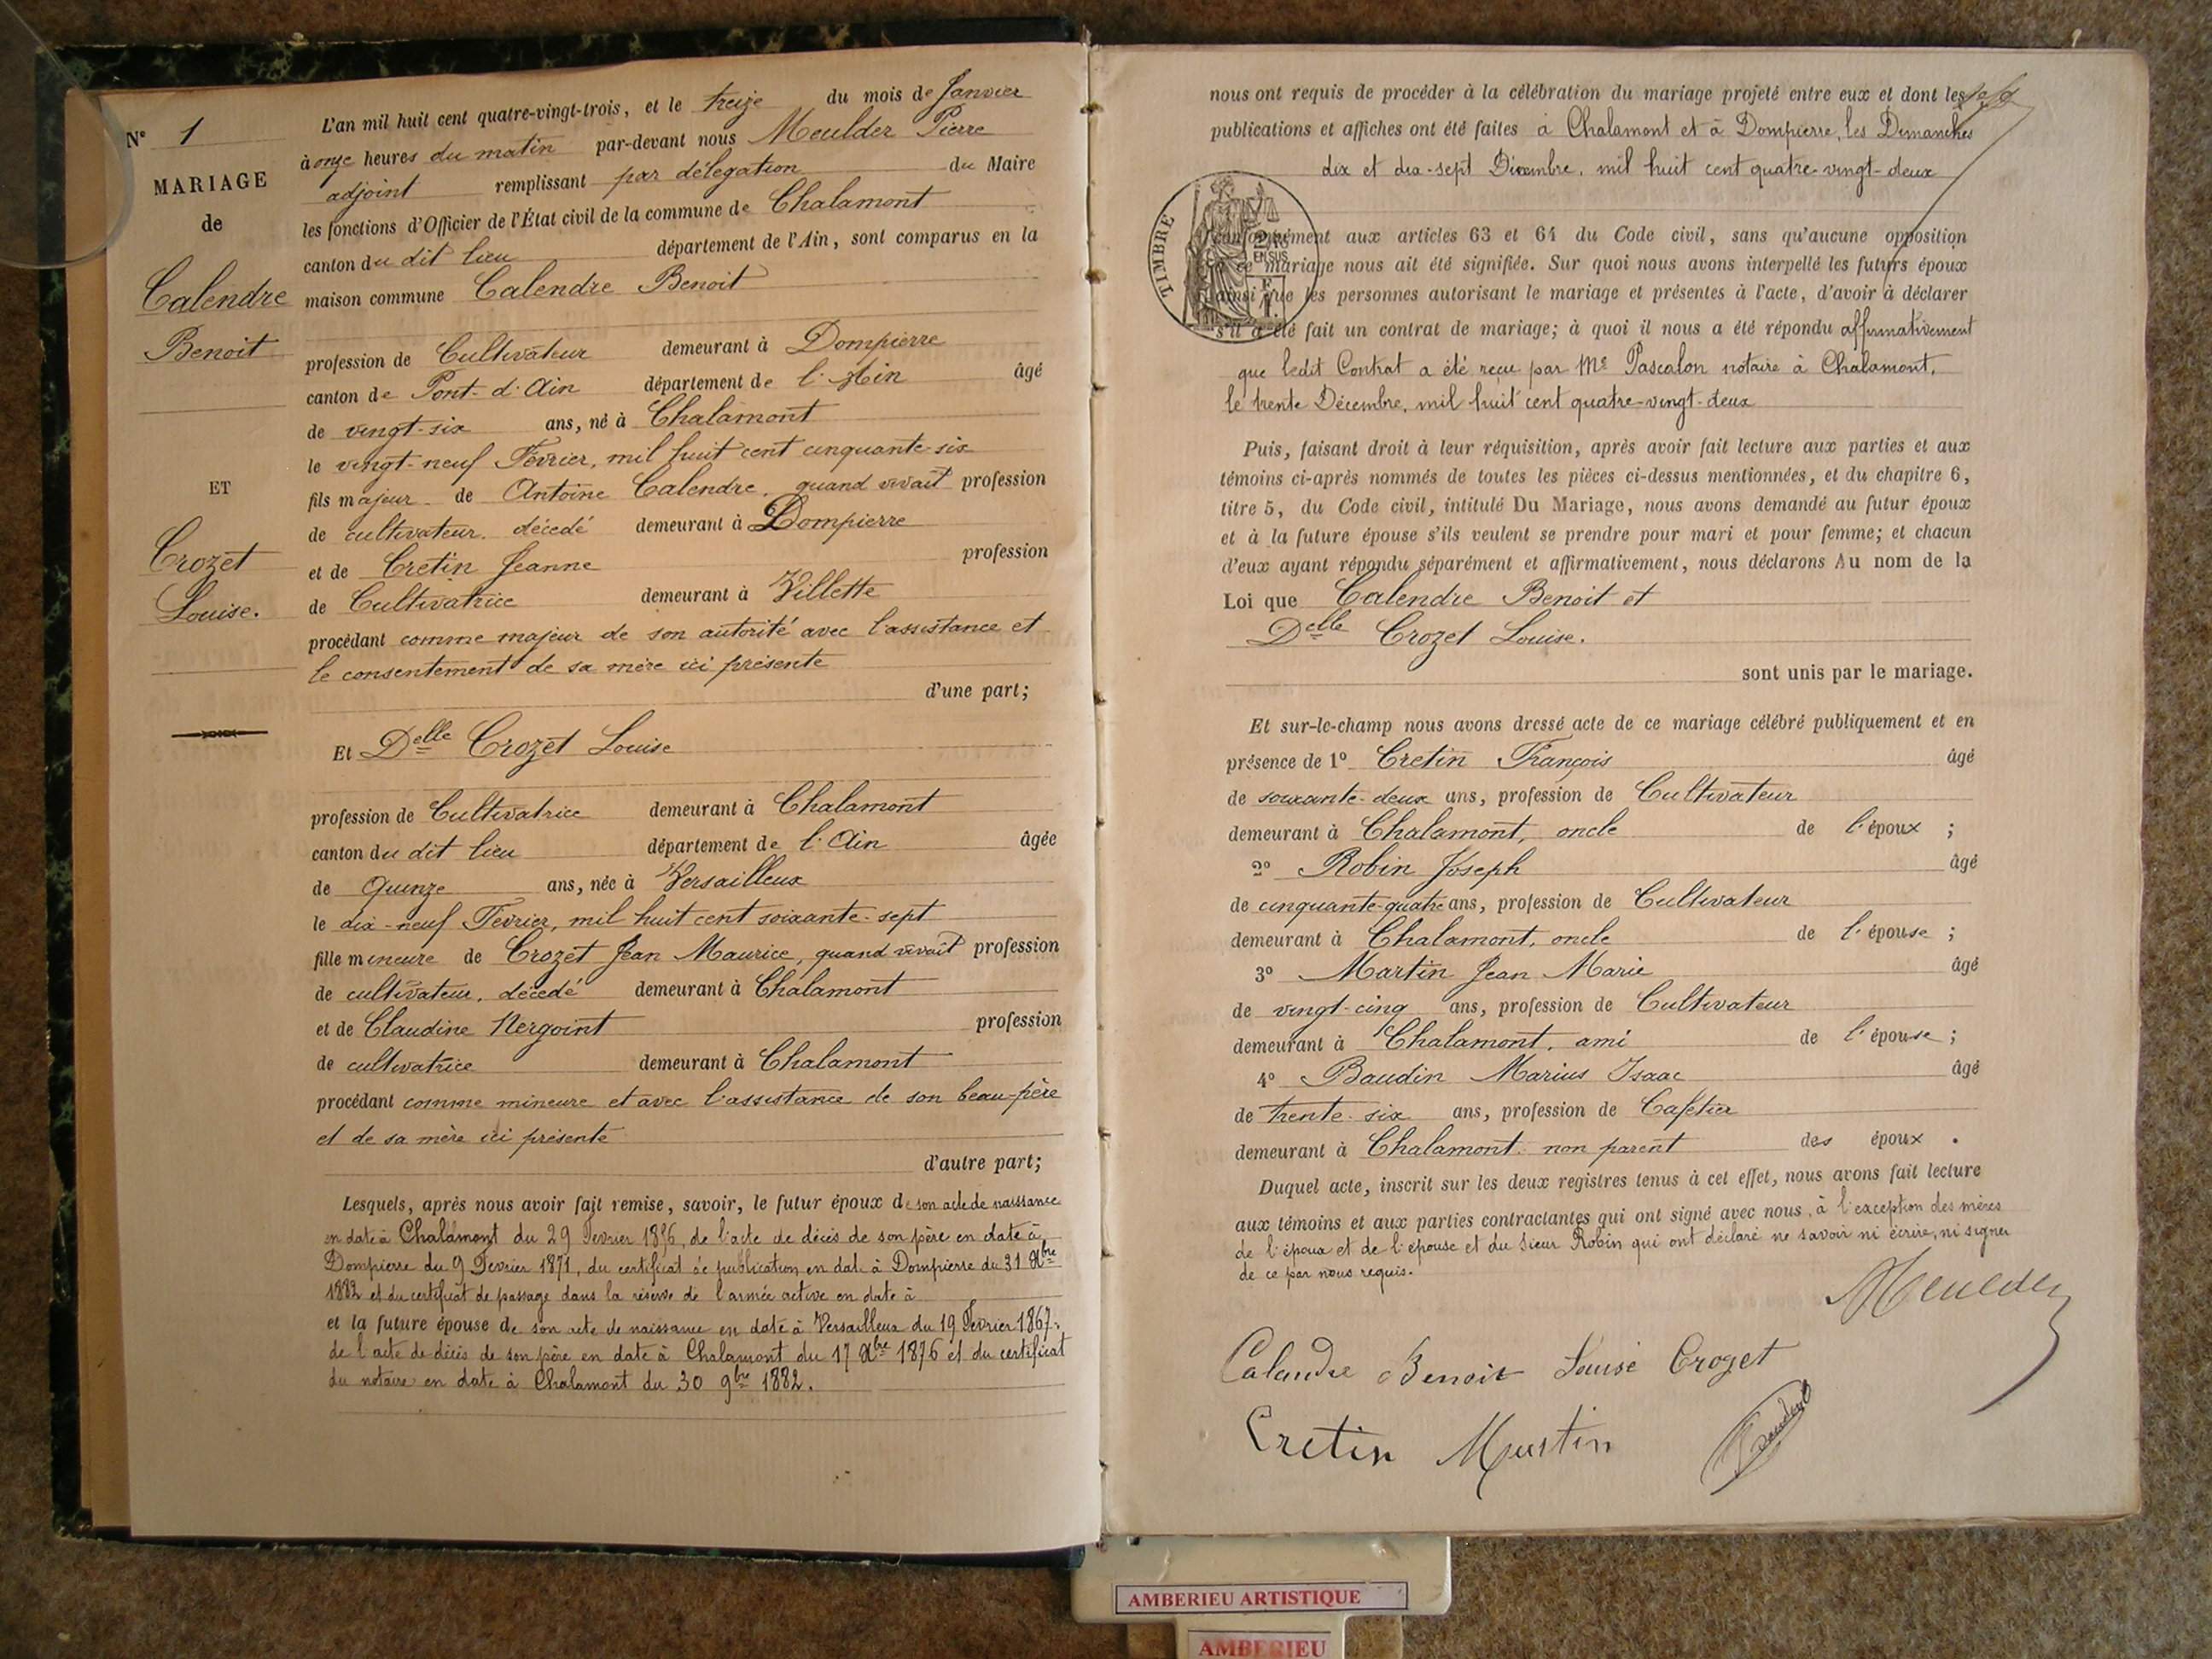 N° 1
MARIAGE
de
Calendre
Benoit
ET
Crozet
Louise.
L'an mil huit cent quatre-vingt-trois, et le treize du mois de Janvier
à onze heures du matin par-devant nous Meulder Pierre
adjoint remplissant par délégation du Maire
les fonctions d'Officier de l'État civil de la commune de Chalamont
canton du dit lieu département de l'Ain, sont comparus en la
maison commune Calendre Benoit
profession de Cultivateur demeurant à Dompierre
canton de Pont-d'Ain département de l'Ain âgé
de vingt-six ans, né à Chalamont
le vingt-neuf Février, mil huit cent cinquante-six
fils majeur de Antoine Calendre, quand vivait profession
de cultivateur, décédé demeurant à Dompierre
et de Cretin Jeanne profession
de Cultivatrice demeurant à Villette
procédant comme majeur de son autorité avec l'assistance et
le consentement de sa mère ici présente
d'une part;
Et Delle Crozet Louise
profession de Cultivatrice demeurant à Chalamont
canton du dit lieu département de l'Ain âgée
de Quinze ans, née à Versailleux
le dix-neuf Février, mil huit cent soixante-sept
fille mineure de Crozet Jean Maurice, quand vivait profession
de cultivateur, décédé demeurant à Chalamont
et de Claudine Nergoint profession
de cultivatrice demeurant à Chalamont
procédant comme mineure et avec l'assistance de son beau-père
et de sa mère ici présente
d'autre part;
Lesquels, après nous avoir fait remise, savoir, le futur époux de son acte de naissance
en date à Chalamont du 29 Février 1856, de l'acte de décès de son père en date à
Dompierre du 9 Février 1871, du certificat de publication en date à Dompierre du 31 Xbre
1882 et du certificat de passage dans la réserve de l'armée active en date à
et la future épouse de son acte de naissance en date à Versailleux du 19 Février 1867,
de l'acte de décès de son père en date à Chalamont du 17 Xbre 1876 et du certificat
du notaire en date à Chalamont du 30 9bre 1882.
nous ont requis de procéder à la célébration du mariage projeté entre eux et dont les
publications et affiches ont été faites à Chalamont et à Dompierre, les Dimanches
dix et dix-sept Décembre, mil huit cent quatre-vingt-deux
TIMBRE
conformément aux articles 63 et 64 du Code civil, sans qu'aucune opposition
à ce mariage nous ait été signifiée. Sur quoi nous avons interpellé les futurs époux
ainsi que les personnes autorisant le mariage et présentes à l'acte, d'avoir à déclarer
s'il a été fait un contrat de mariage; à quoi il nous a été répondu affirmativement
que ledit Contrat a été reçu par Me Pascalon notaire à Chalamont,
le trente Décembre, mil huit cent quatre-vingt-deux
Puis, faisant droit à leur réquisition, après avoir fait lecture aux parties et aux
témoins ci-après nommés de toutes les pièces ci-dessus mentionnées, et du chapitre 6,
titre 5, du Code civil, intitulé Du Mariage, nous avons demandé au futur époux
et à la future épouse s'ils veulent se prendre pour mari et pour femme; et chacun
d'eux ayant répondu séparément et affirmativement, nous déclarons Au nom de la
Loi que Calendre Benoit et
Delle Crozet Louise.
sont unis par le mariage.
Et sur-le-champ nous avons dressé acte de ce mariage célébré publiquement et en
présence de 1° Cretin François âgé
de soixante-deux ans, profession de Cultivateur
demeurant à Chalamont, oncle de l'époux ;
2° Robin Joseph âgé
de cinquante-quatre ans, profession de Cultivateur
demeurant à Chalamont, oncle de l'épouse ;
3° Martin Jean Marie âgé
de vingt-cinq ans, profession de Cultivateur
demeurant à Chalamont, ami de l'épouse ;
4° Baudin Marius Isaac âgé
de trente-six ans, profession de Cafetier
demeurant à Chalamont non parent des époux .
Duquel acte, inscrit sur les deux registres tenus à cet effet, nous avons fait lecture
aux témoins et aux parties contractantes qui ont signé avec nous, à l'exception des mères
de l'époux et de l'épouse et du Sieur Robin qui ont déclaré ne savoir ni écrire, ni signer
de ce par nous requis.
Meulder
Calandre Benoit Louise Crozet
Cretin Martin Baudin
AMBERIEU ARTISTIQUE
AMBERIEU